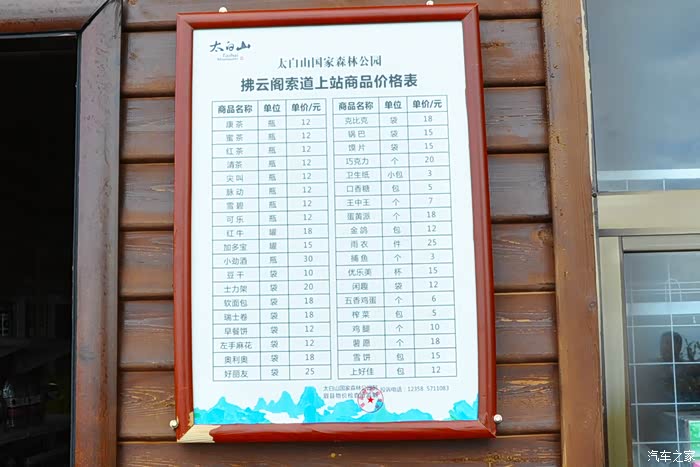 太白山
太白山国家森林公园
拂云阁索道上站商品价格表
商品名称 单位 单价/元
康茶 瓶 12
蜜茶 瓶 12
红茶 瓶 12
清茶 瓶 12
尖叫 瓶 12
脉动 瓶 12
雪碧 瓶 12
可乐 瓶 12
红牛 罐 18
加多宝 罐 15
小劲酒 瓶 30
豆干 袋 10
士力架 袋 20
软面包 袋 18
瑞士卷 袋 18
早餐饼 袋 12
左手麻花 袋 12
奥利奥 袋 18
好丽友 袋 25
商品名称 单位 单价/元
克比克 袋 18
锅巴 袋 15
馍片 袋 15
巧克力 个 20
卫生纸 小包 3
口香糖 包 5
王中王 个 7
蛋黄派 个 18
金鸽 包 12
雨衣 件 25
捕鱼 个 3
优乐美 杯 15
闲趣 袋 12
五香鸡蛋 个 6
榨菜 包 5
鸡腿 个 10
薯愿 个 18
雪饼 包 15
上好佳 包 12
太白山国家森林公园
投诉电话：12358 5711083
眉县物价检查所监制
汽车之家